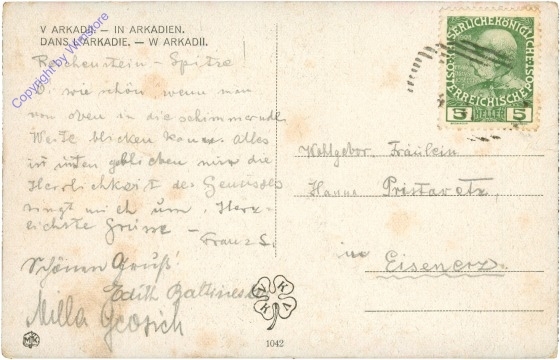 V ARKADII. — IN ARKADIEN.
DANS L'ARKADIE. — W ARKADII.
Copyright by Wiastore
Reichenstein - Spitze
O, wie schön, wenn man
von oben in die schimmernde
Weite blicken kann. Alles
ist unten geblieben nur die
Herrlichkeit des Genusses
ringt mich um. Herz-
lichste Grüsse -
Franz S.
Schönen Gruß!
Edith
Milla
KAISERLICHEKÖNIGLICHE
OSTERREICHISCHE POST
5 HELLER 5
Wohlgebor. Fräulein
Hanna
in
Eisenerz
VKKV
MK
1042